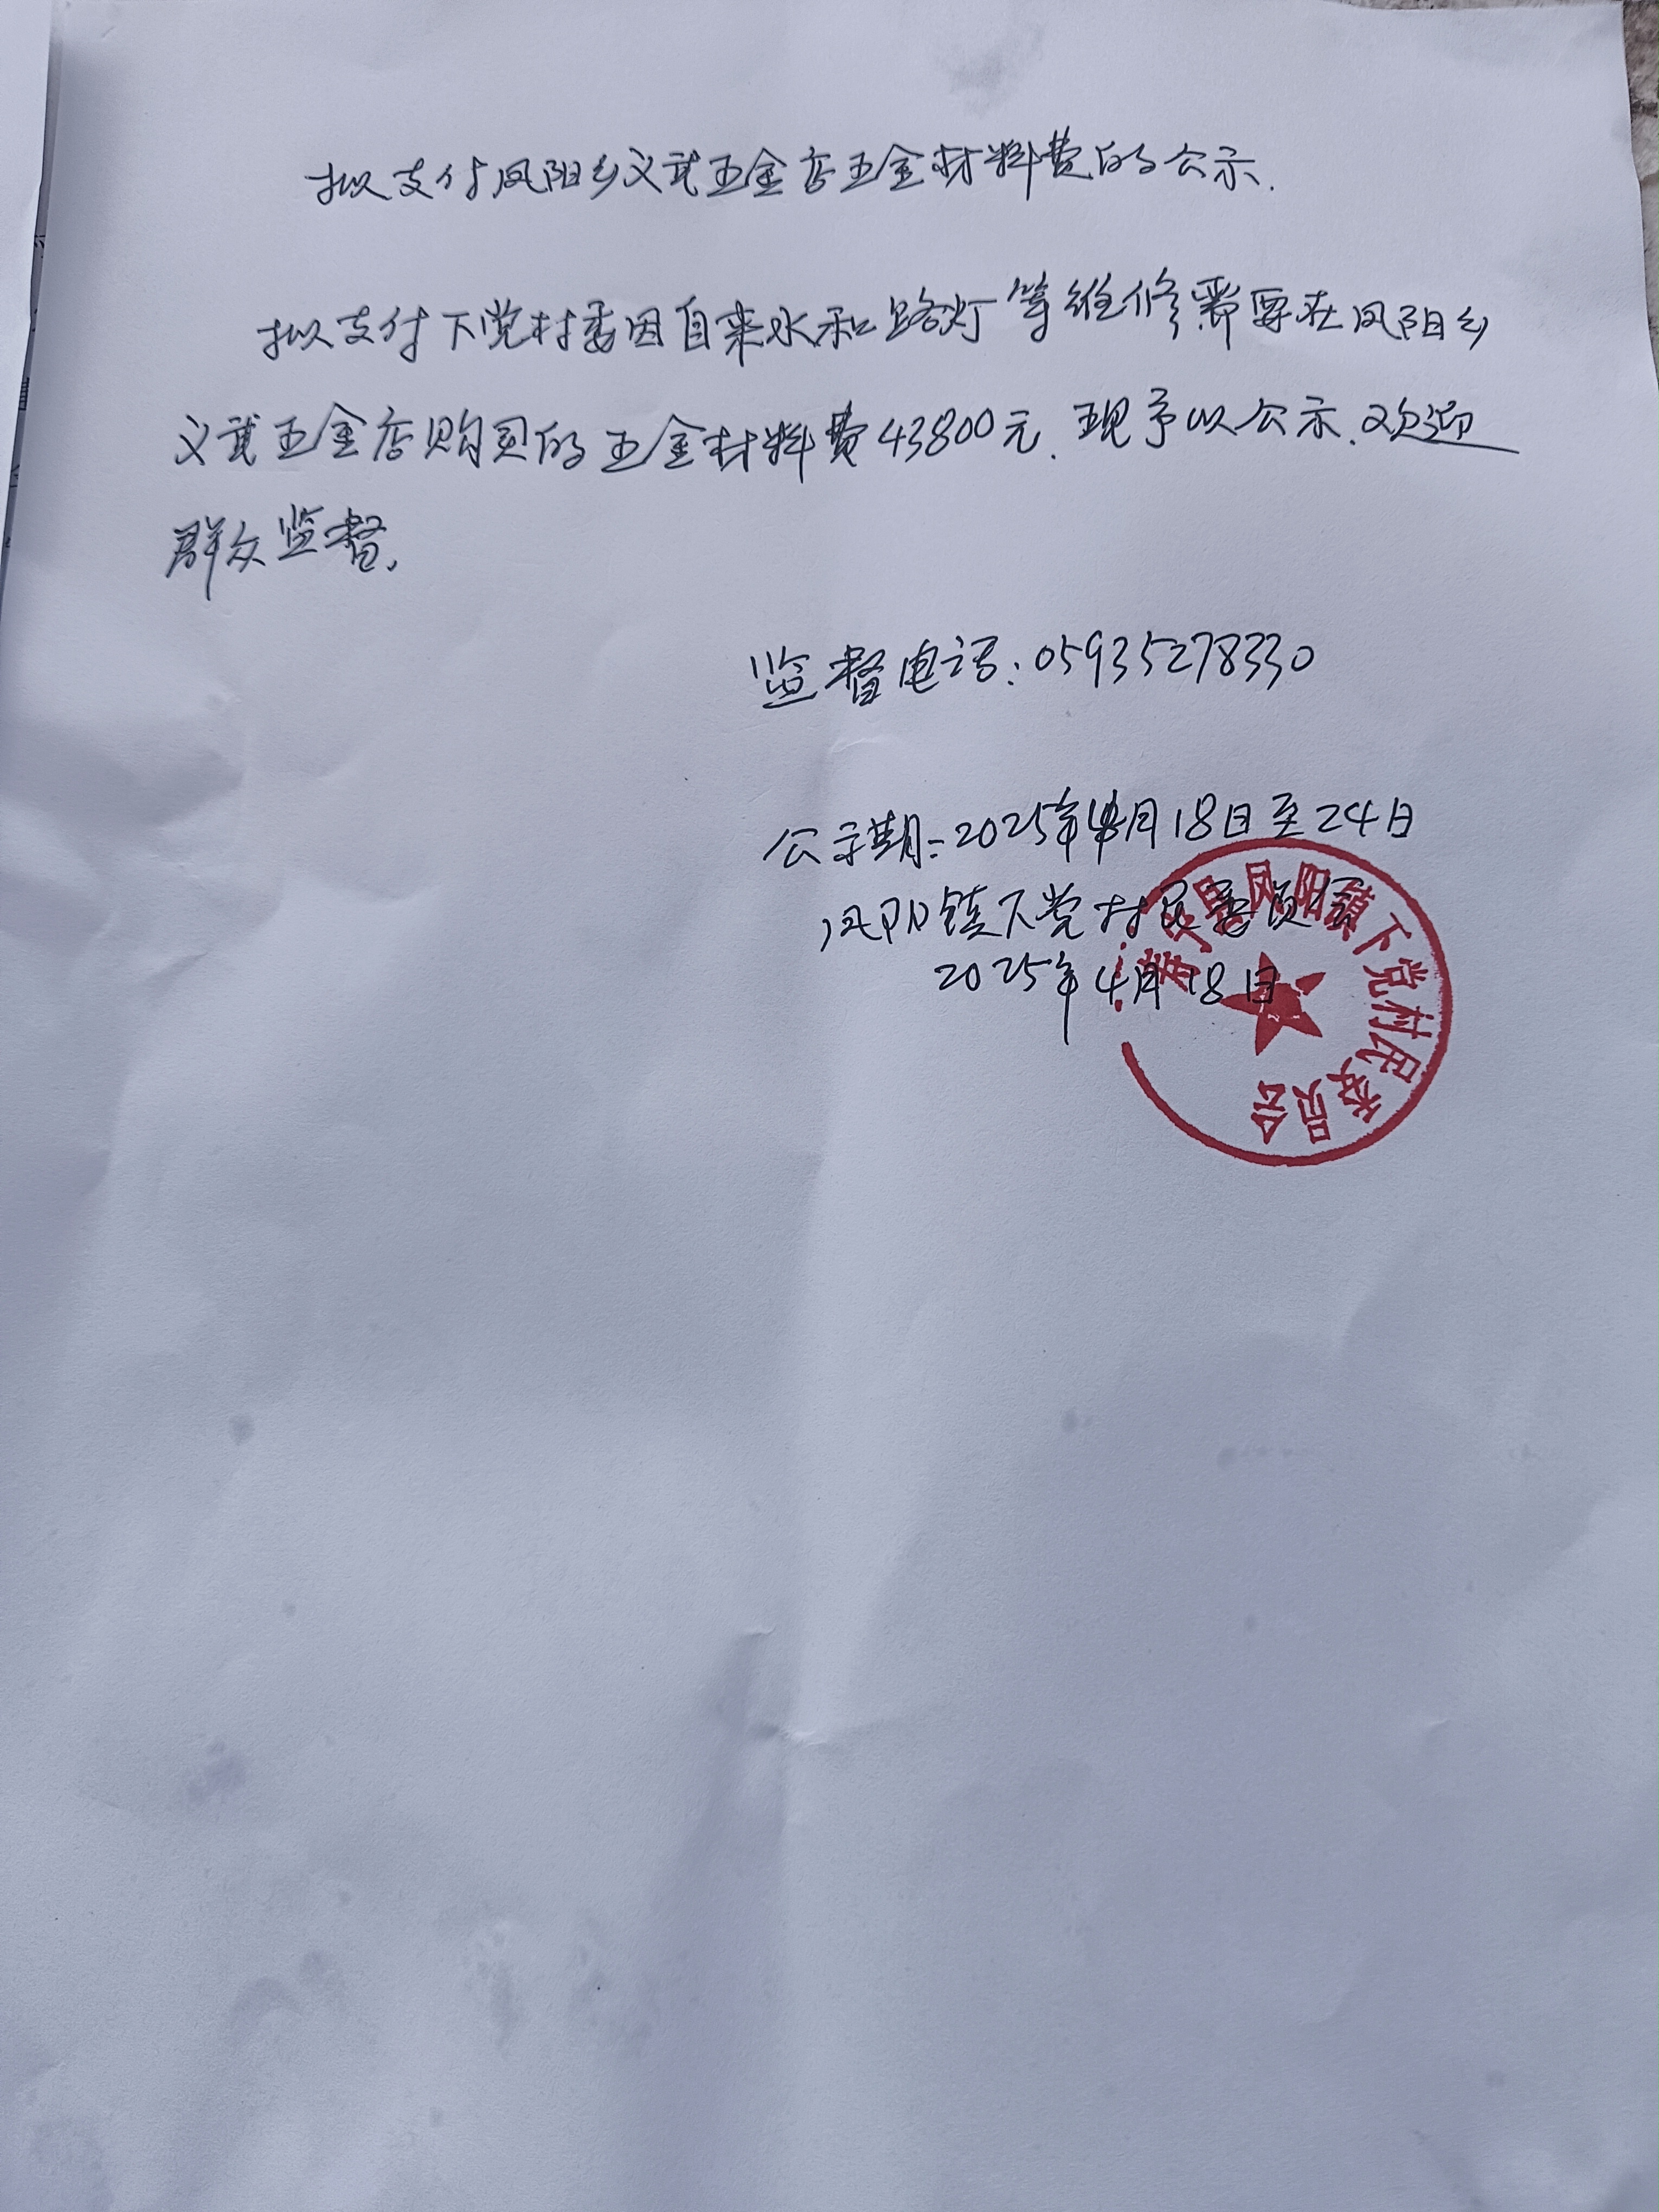 拟支付凤阳乡义武五金店五金材料费的公示.
拟支付下党村委因自来水和路灯等维修需要在凤阳乡
义武五金店购买的五金材料费43800元.现予以公示.欢迎
群众监督.
监督电话:05935278330
公示期:2025年4月18日至24日
凤阳镇下党村民委员会
2025年4月18日
寿宁县凤阳镇下党村民委员会